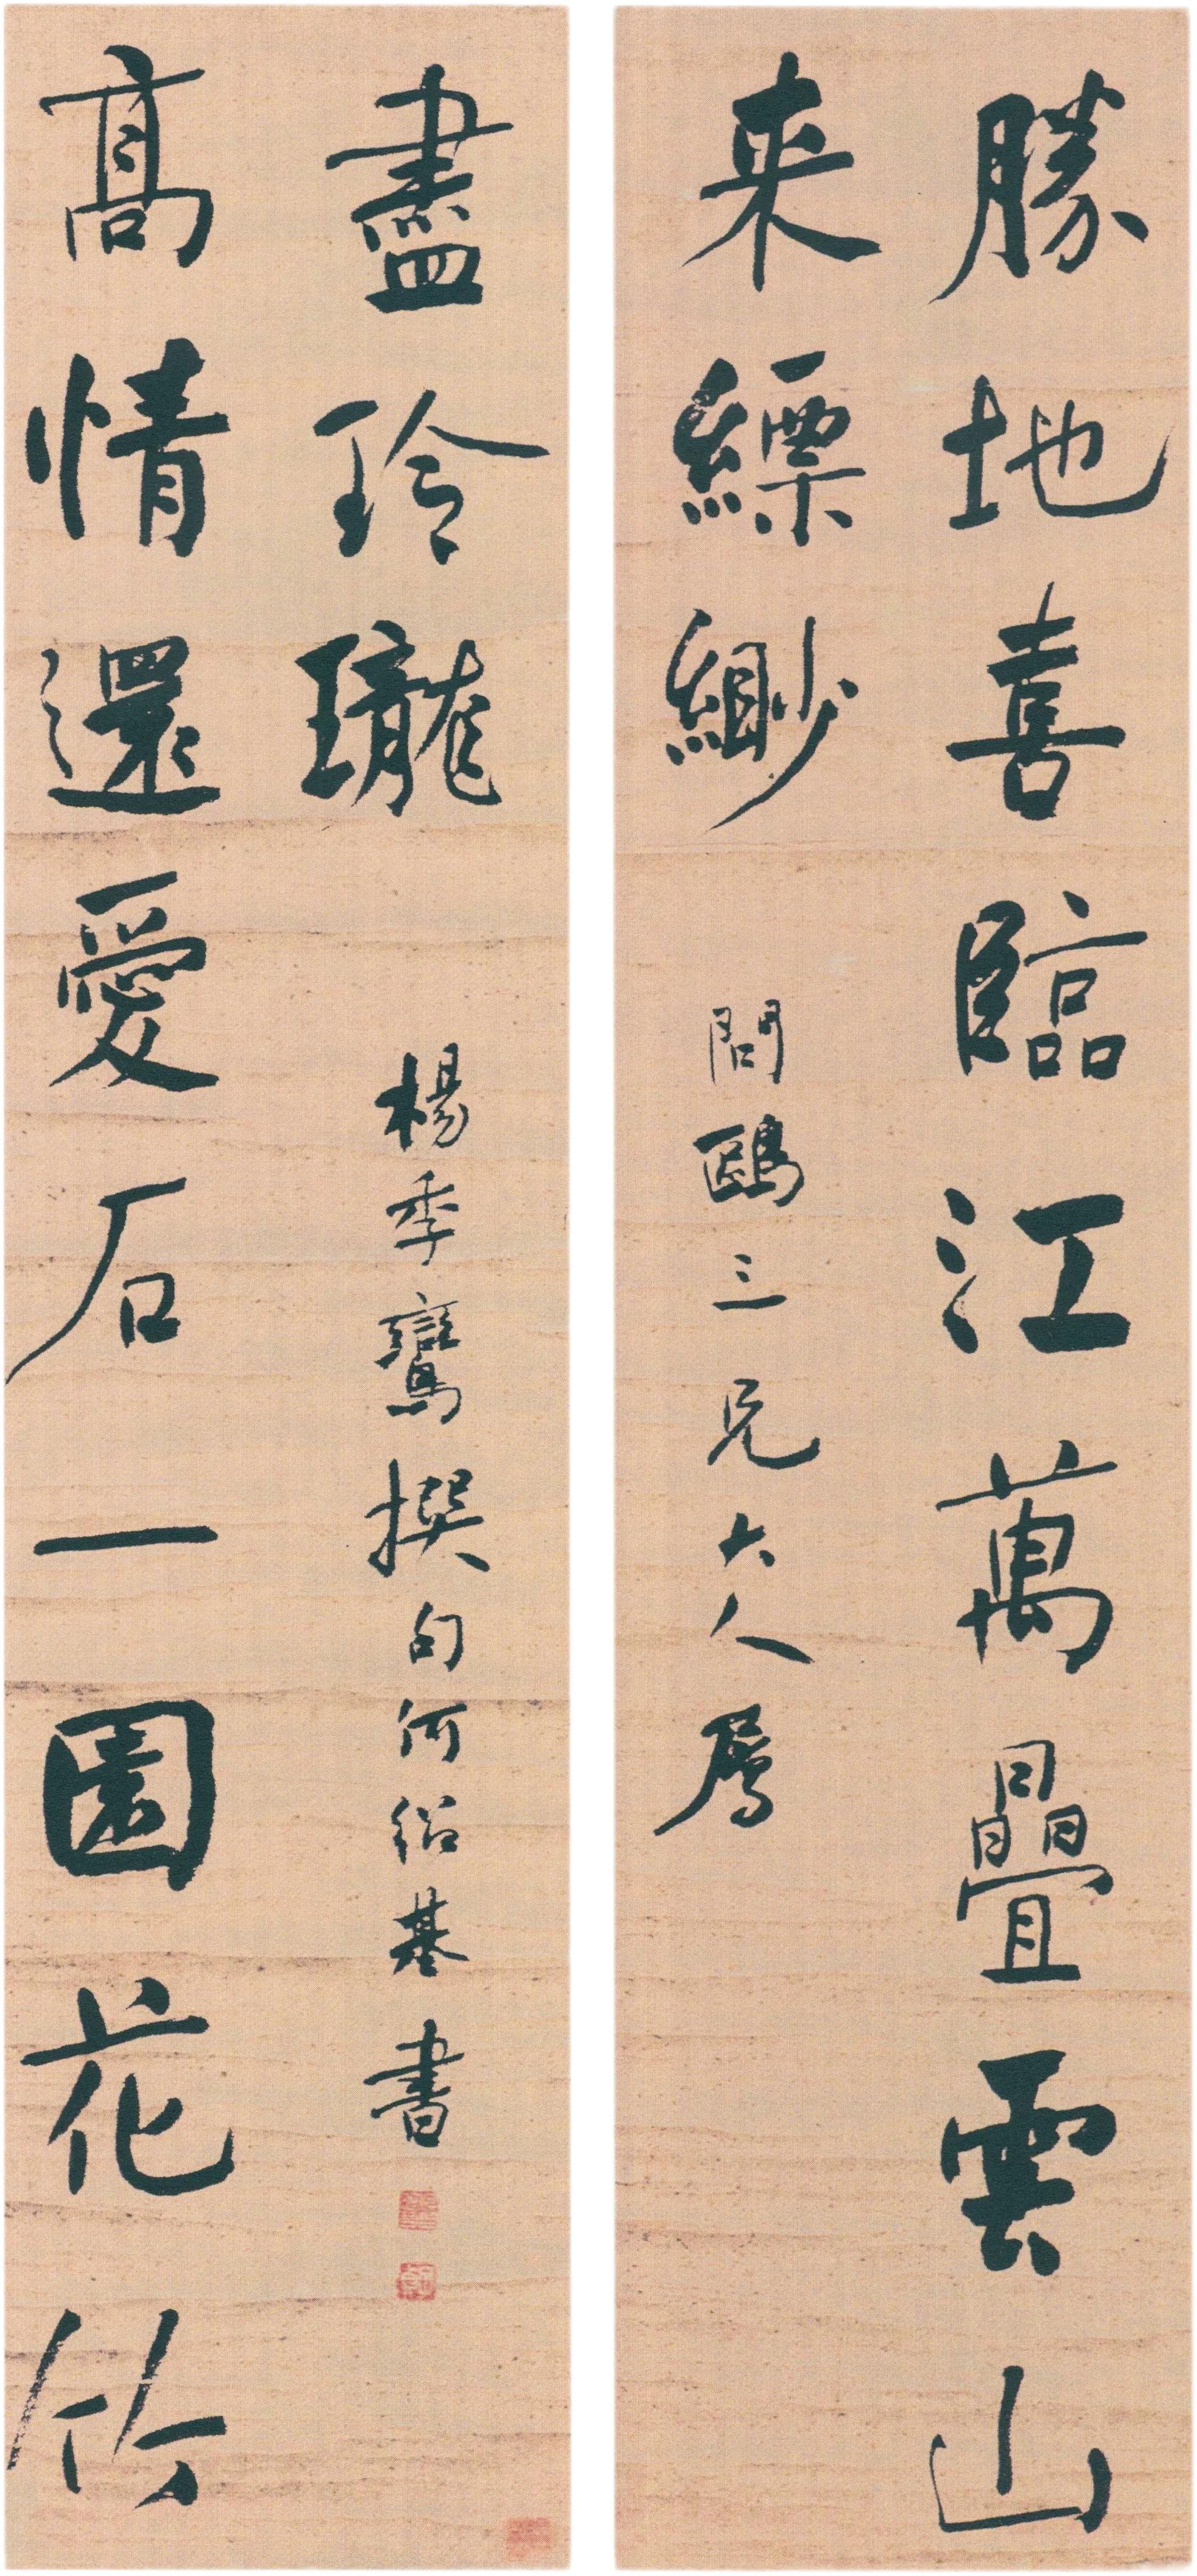 勝地喜臨江萬疊雲山
来縹緲
問鷗三兄大人屬
高情還愛石一園花竹
盡玲瓏
楊季鸞撰句何紹基書